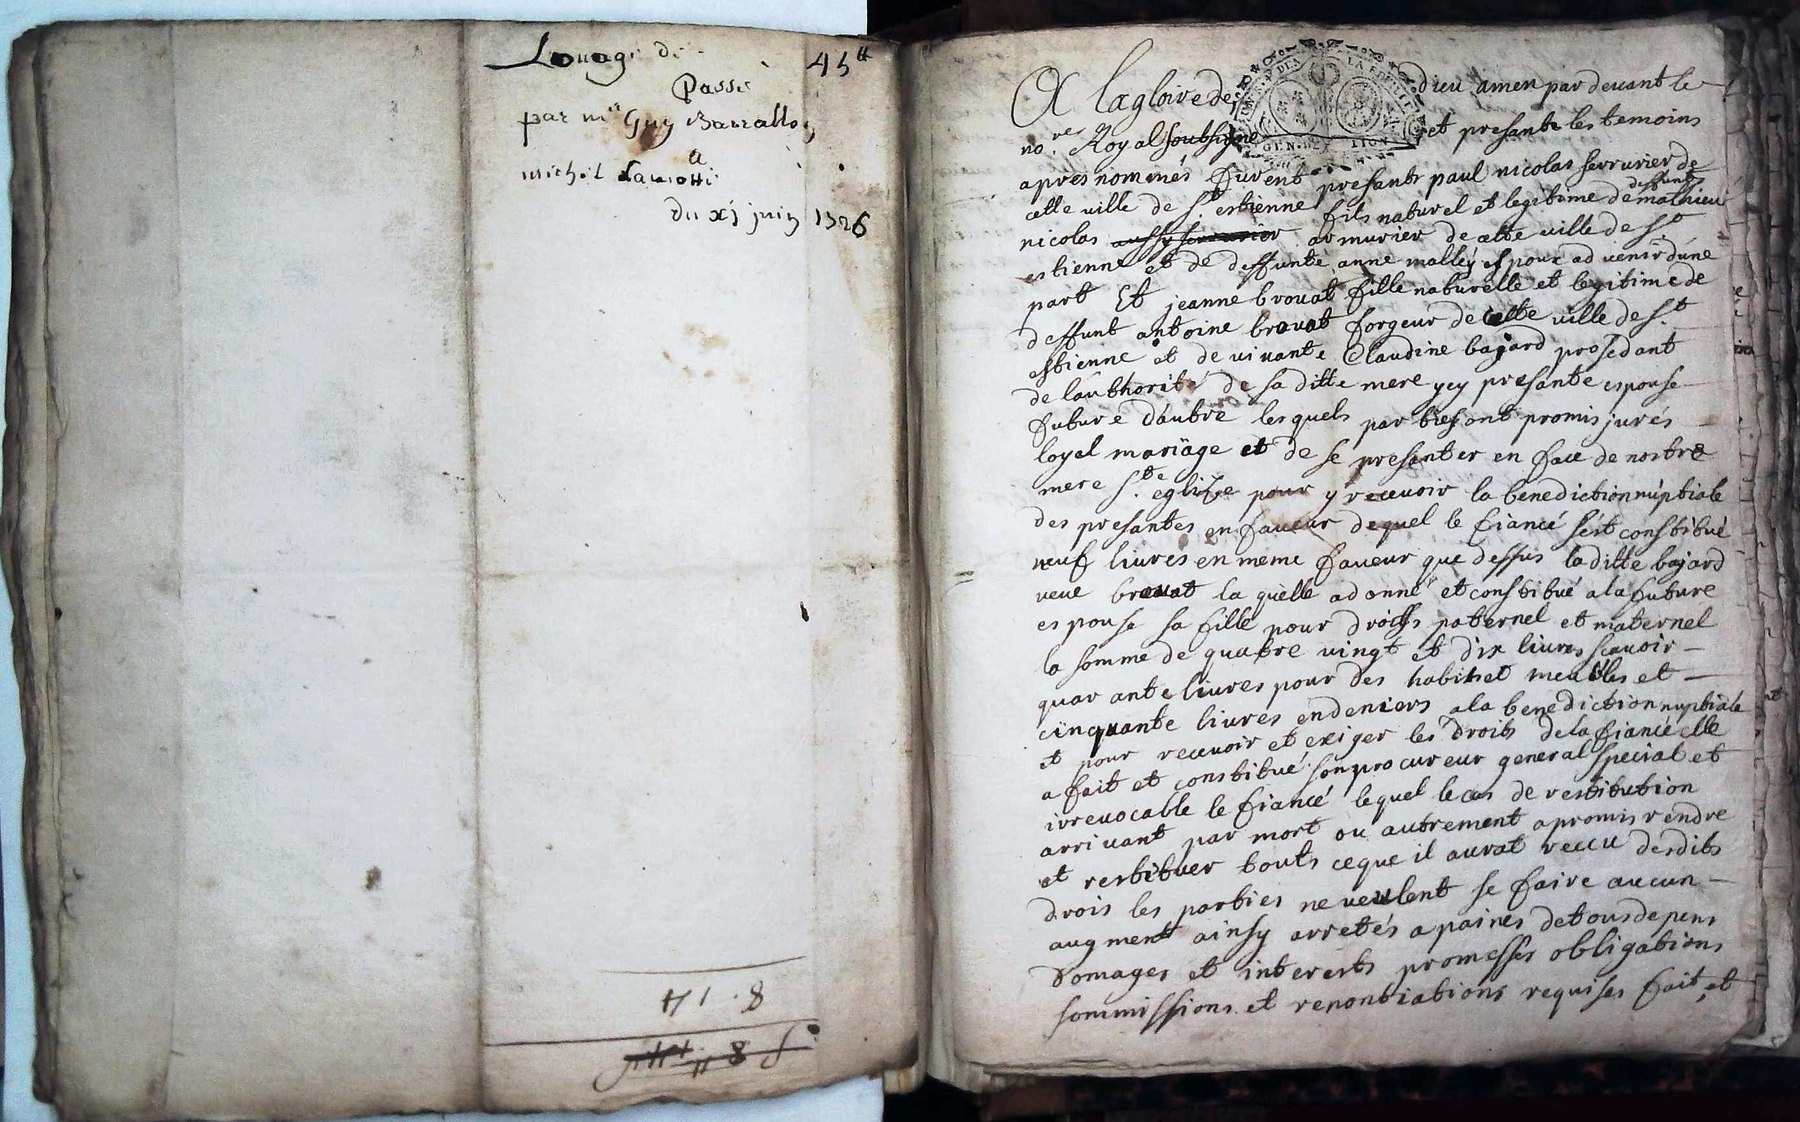 Louage de 45tt
Passé
par mr Guy Barrallon
a
michel
du xj juin 1726
8. 14
A la gloire de dieu amen par devant le
nore. Royal soubsigne et presants les temoins
apres nommés furent presants paul nicolas serrurier de
cette ville de St. estienne fils naturel et legitime de deffunts mathieu
nicolas aussy serrurier armurier de cette ville de St
estienne et de deffunte anne malley espoux advenir d'une
part Et jeanne brouat fille naturelle et legitime de
deffunt antoine brouat forgeur de cette ville de St.
estienne et de vivante Claudine bajard prosedant
de l'authorité de sa ditte mere ycy presante espouse
future d'autre lesquels parties ont promis jurés
loyal mariage et de se presenter en face de nostre
mere Ste. eglize pour y recevoir la benediction nuptiale
des presantes en faveur dequel le fiancé s'est constitué
neuf livres en meme faveur que dessus laditte bajard
veue brouat la quelle a donné et constitué a la future
espouse sa fille pour droitts paternel et maternel
la somme de quatre vingt et dix livres scavoir
quarante livres pour des habits et meubles et
cinquante livres en deniers a la benediction nuptiale
et pour recevoir et exiger les droits de la fiancé elle
a fait et constitué son procureur general special et
irrevocable le fiancé lequel le cas de restitution
arrivant par mort ou autrement a promis rendre
et restituer touts ce que il aurat reccu desdits
drois les parties ne veulent se faire aucun
augment ainsy arretés a paines de tous depens
domages et interests promesses obligations
sommissions et renontiations requises fait et